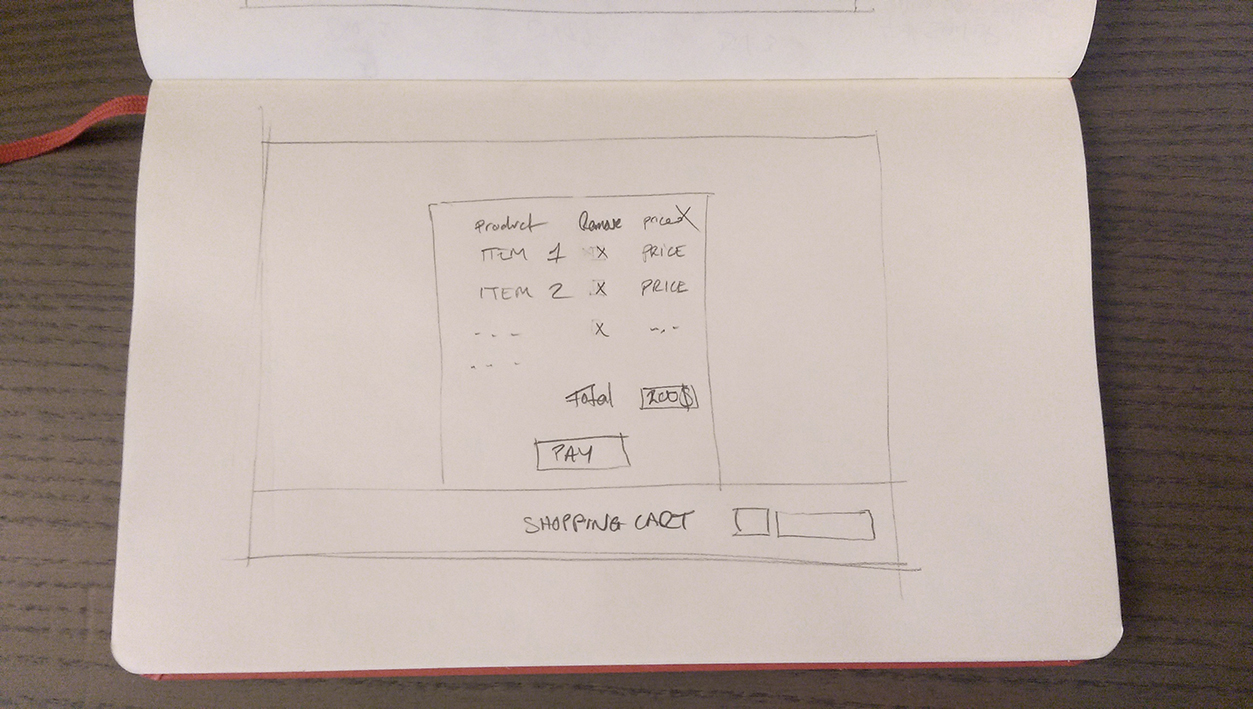 Product Remove price X
ITEM 1 X PRICE
ITEM 2 X PRICE
- - - X - . -
- - -
Total 200$
PAY
SHOPPING CART